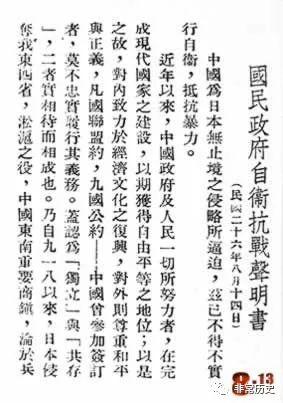 國民政府自衛抗戰聲明書
(民國二十六年八月十四日)
中國爲日本無止境之侵略所逼迫,茲已不得不實
行自衛,抵抗暴力。
近年以來,中國政府及人民一切所努力者,在完
成現代國家之建設,以期獲得自由平等之地位;以是
之故,對內致力於經濟文化之復興,對外則尊重和平
與正義,凡國聯盟約,九國公約——中國曾參加簽訂
者,莫不忠實履行其義務。蓋認爲「獨立」與「共存
」,二者實相待而相成也。乃自九一八以來,日本侵
奪我東四省,淞滬之役,中國東南重要商鎮,淪於兵
8.13
非常历史